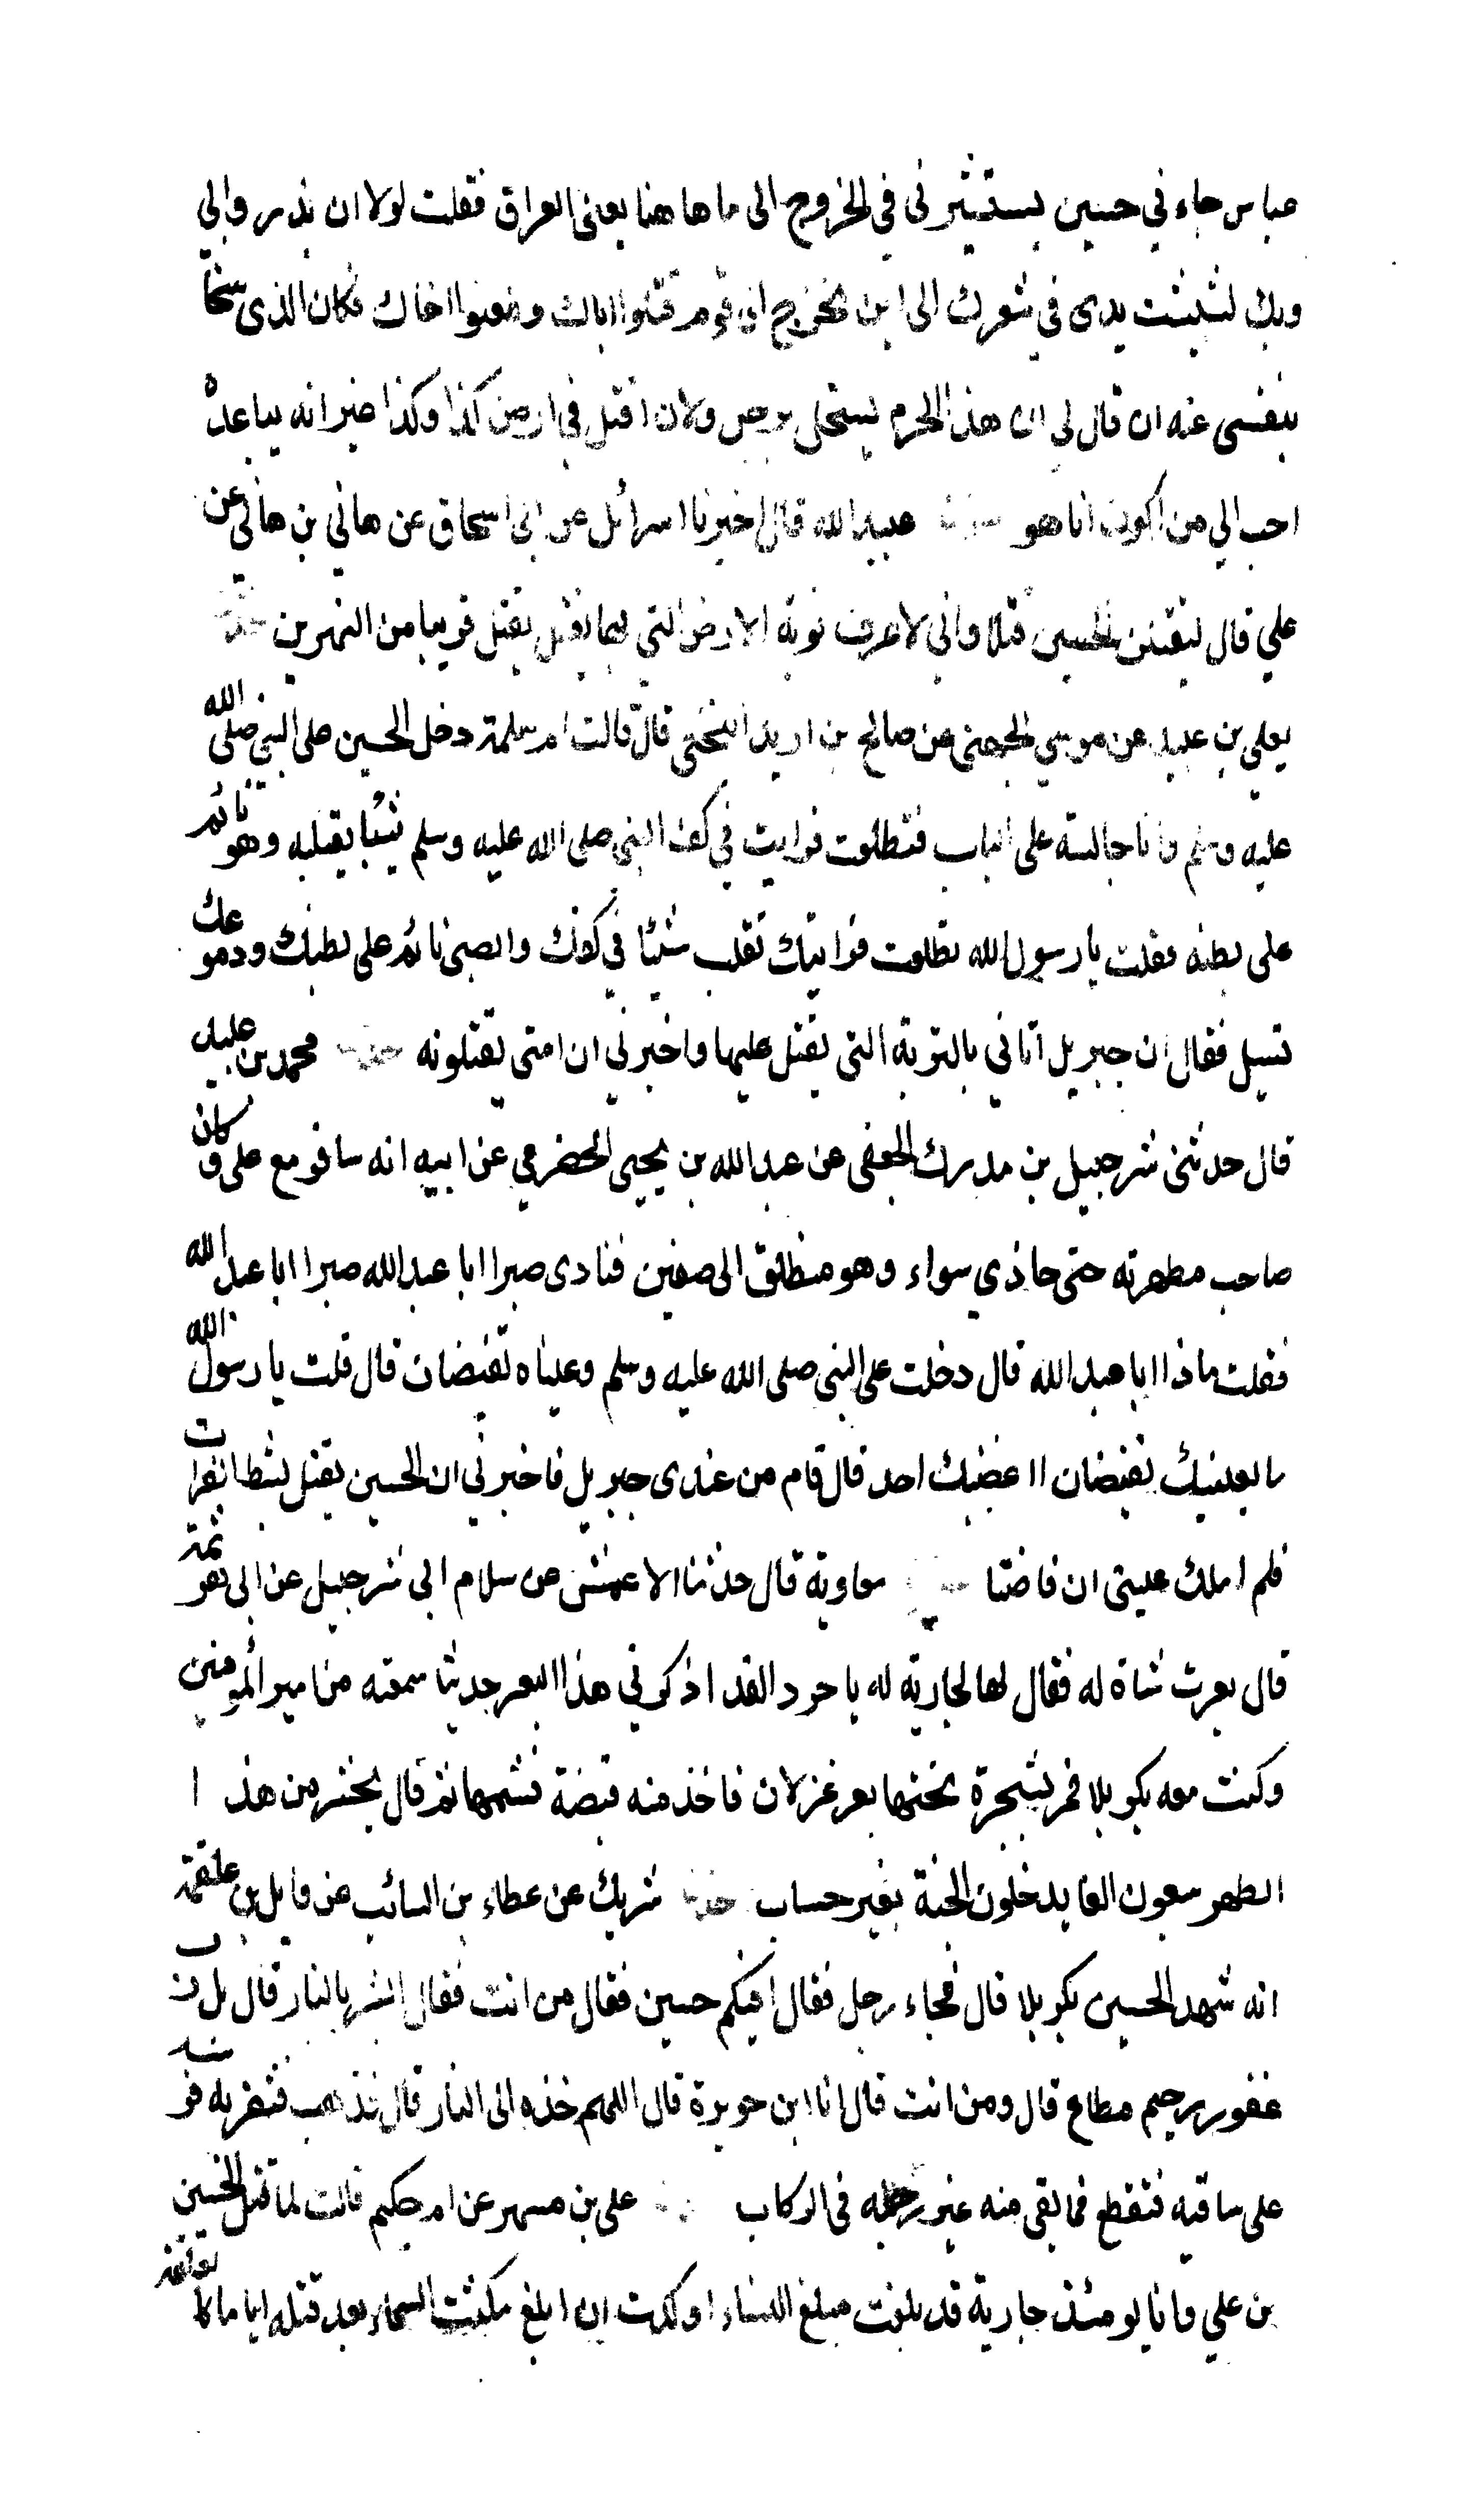 عباس جاء في حسين يستشيرنى في الخروج الى ما هاهنا يعنى العراق فقلت لولا ان يزروا بي
وبك لشبثت يدى في شعرك الى اين تخرج الى قوم قتلوا اباك وطعنوا اخاك فكان الذى سخا
بنفسى عنه ان قال لى ان هذا الحرم يستحل برجل ولان اقتل في ارض كذا وكذا غير انه يباعده
احب الي من اكون انا هو حدثنا عبيد الله قال اخبرنا اسرائل عن ابى اسحاق عن هاني بن هاني عن
علي قال ليقتلن الحسين قتلا واني لاعرف تربة الارض التي بها يقتل يقتل قريبا من النهرين حدثنا
يعلي بن عبيد عن موسي الجهنى عن صالح بن اربد النخعى قال قالت ام سلمة دخل الحسين على النبي صلى الله
عليه وسلم وانا جالسة على الباب فتطلعت فرايت في كف النبى صلى الله عليه وسلم شيئا يقلبه وهو نائم
على بطنه فقلت يا رسول الله تطلعت فرايتك تقلب شيئا في كفك والصبى نائم على بطنك ودموعك
تسيل فقال ان جبريل اتاني بالتربة التى يقتل عليها واخبرني ان امتى يقتلونه حدثنا محمد بن عبيد
قال حدثنى شرحبيل بن مدرك الجعفى عن عبد الله بن يحيى الحضرمي عن ابيه انه سافر مع على وكان
صاحب مطهرته حتى حاذي سواء وهو منطلق الى صفين فنادى صبرا ابا عبد الله صبرا ابا عبد الله
فقلت ماذا ابا عبد الله قال دخلت على النبى صلى الله عليه وسلم وعيناه تفيضان قال قلت يا رسول الله
ما لعينيك تفيضان ااغضبك احد قال قام من عندى جبريل فاخبرني ان الحسين يقتل بشط الفرات
فلم املك عينى ان فاضتا حدثنا معاوية قال حدثنا الاعمش عن سلام ابى شرحبيل عن ابى هرثمة
قال بعرت شاة له فقال لها لجارية له يا جرد القد اذكرني هذا البعر حديثا سمعته من امير المؤمنين
وكنت معه بكربلا فمر بشجرة تحتها بعر غزلان فاخذ منه قبضة فشمها ثم قال يحشر من هذا
الظهر سبعون الفا يدخلون الجنة بغير حساب حدثنا شريك عن عطاء بن السائب عن وايل بن علقمة
انه شهد الحسين بكربلا قال فجاء رجل فقال افيكم حسين فقال من انت فقال ابشر بالنار قال بل رب
غفور رحيم مطاع قال ومن انت قال انا ابن حويزة قال اللهم حذه الى النار قال فذهب فنفر به فرسه
على ساقيه فتقطع فما بقى منه غير رجله فى الركاب حدثنا على بن مسهر عن ام حكيم قالت لما قتل الحسين
بن علي وانا يومئذ جارية قد بلغت مبلغ النساء او كدت ان ابلغ مكثت السماء بعد قتله اياما كالعلقة